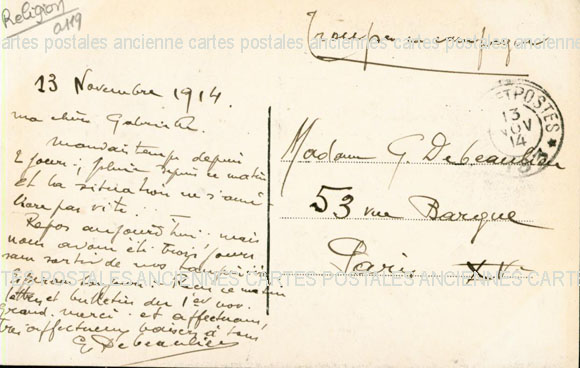 Religion
a119
Troupes en campagne
cartes postales anciennes cartes postales anciennes cartes postales anciennes
13 Novembre 1914.
ma chère Gabrielle.
Mauvais temps depuis
2 jours; pluie depuis ce matin
et la situation ne s'amé-
liore pas vite.
Repos aujourd'hui, mais
nous avons été trois jours
sans sortir de nos
ce matin
lettre et bulletin du 1er nov.
Grand merci et affectueux,
très affectueux baisers à tous
G Debeaulieu
ET POSTES
13
NOV
14
Madame G. Debeaulieu
53 rue Bargue
Paris XV
CARTES POSTALES ANCIENNES CARTES POSTALES ANCIENNES CARTES POSTALES